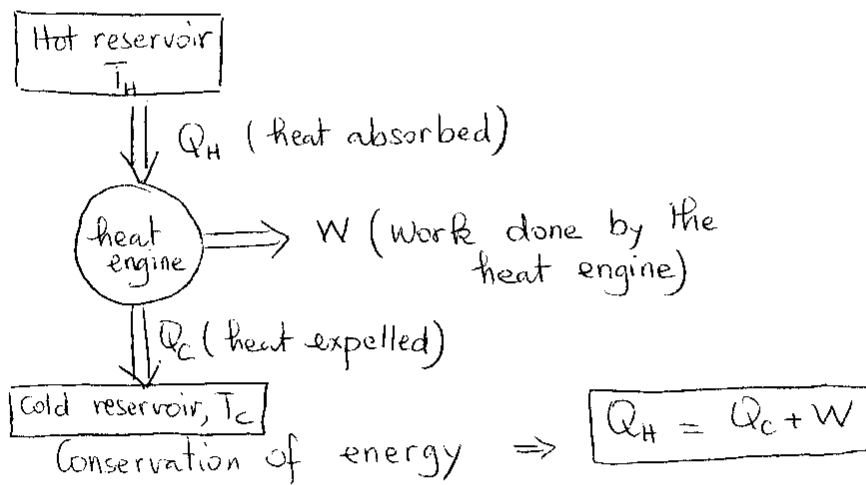 Hot reservoir
T_H
Q_H (heat absorbed)
heat
engine
W (work done by the
heat engine)
Q_C (heat expelled)
Cold reservoir, T_C
Conservation of energy ⇒ Q_H = Q_C + W